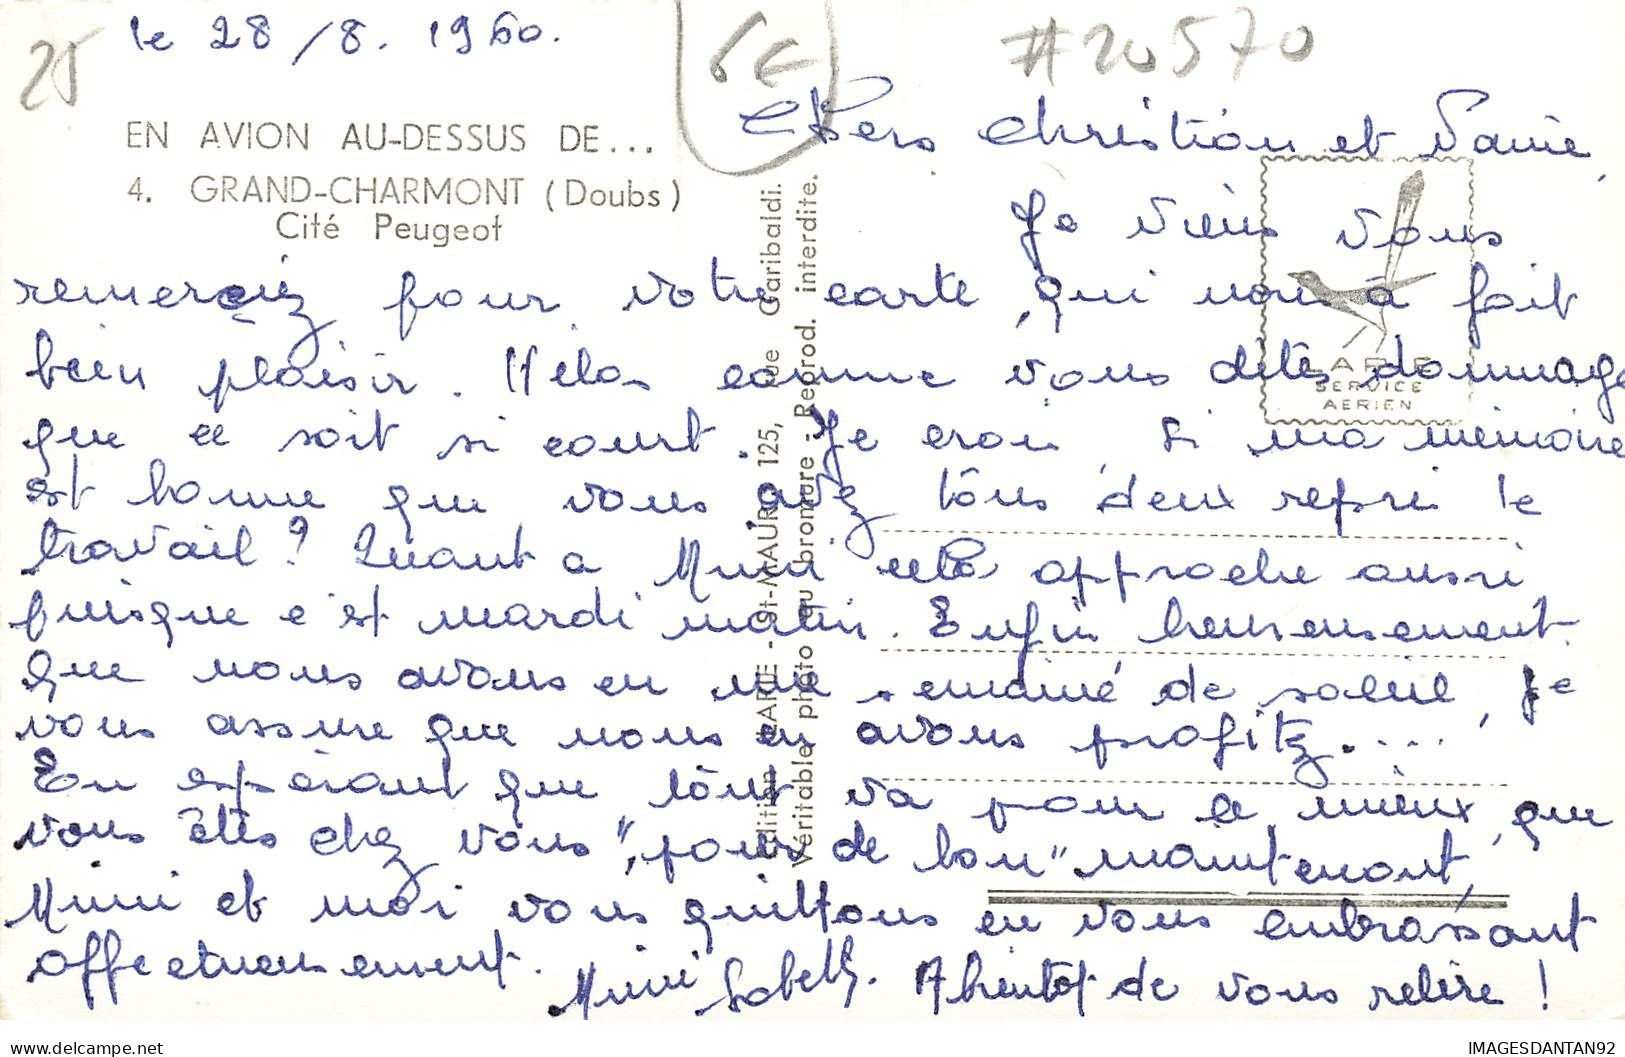 25
le 28/8. 1960.
6€
#20570
EN AVION AU-DESSUS DE...
4. GRAND-CHARMONT (Doubs)
Cité Peugeot
Chers Christian et
Je viens vous
remerciez pour votre carte, qui nous à fait
bien plaisir. Hélas comme vous dîtes dommage
que ce soit si court. Je crois, si ma mémoire
est bonne que vous avez tous deux repris le
travail? Quant a Mimi cela approche aussi
puisque c'est mardi matin. Enfin heureusement
que nous avons eu une semaine de soleil, je
vous assure que nous en avons profitez....
En espérant que tout va pour le mieux, que
vous êtes chez vous, "pour de bon" maintenant,
Mimi et moi vous quittons en vous embrassant
affectueusement.
Mimi
A bientôt de vous relire!
Edition "LAPIE" - St-MAUR, 125, rue Garibaldi.
Véritable photo au bromure - Reprod. interdite.
LAPIE
SERVICE
AERIEN
delcampe.net
IMAGESDANTAN92